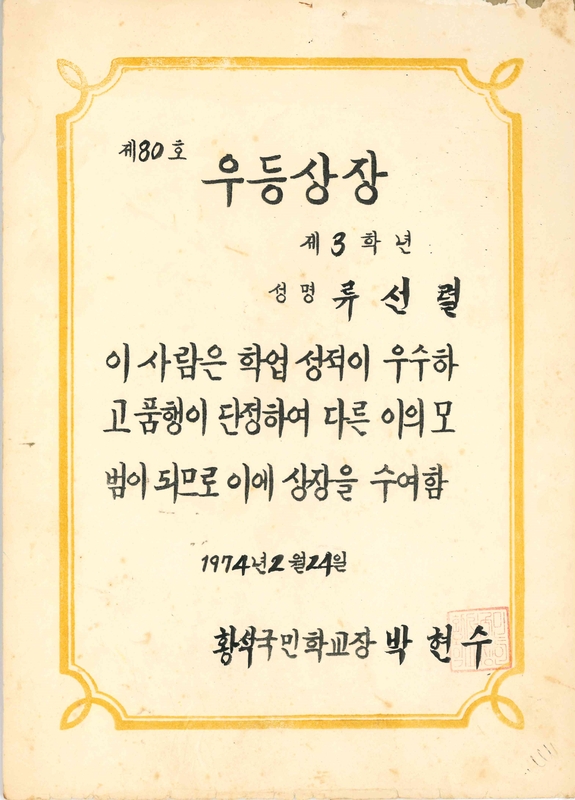 제80호
우등상장
제3학년
성명 류선렬
이 사람은 학업 성적이 우수하
고 품행이 단정하여 다른 이의 모
범이 되므로 이에 상장을 수여함
1974년 2월 24일
황석국민학교장 박현수